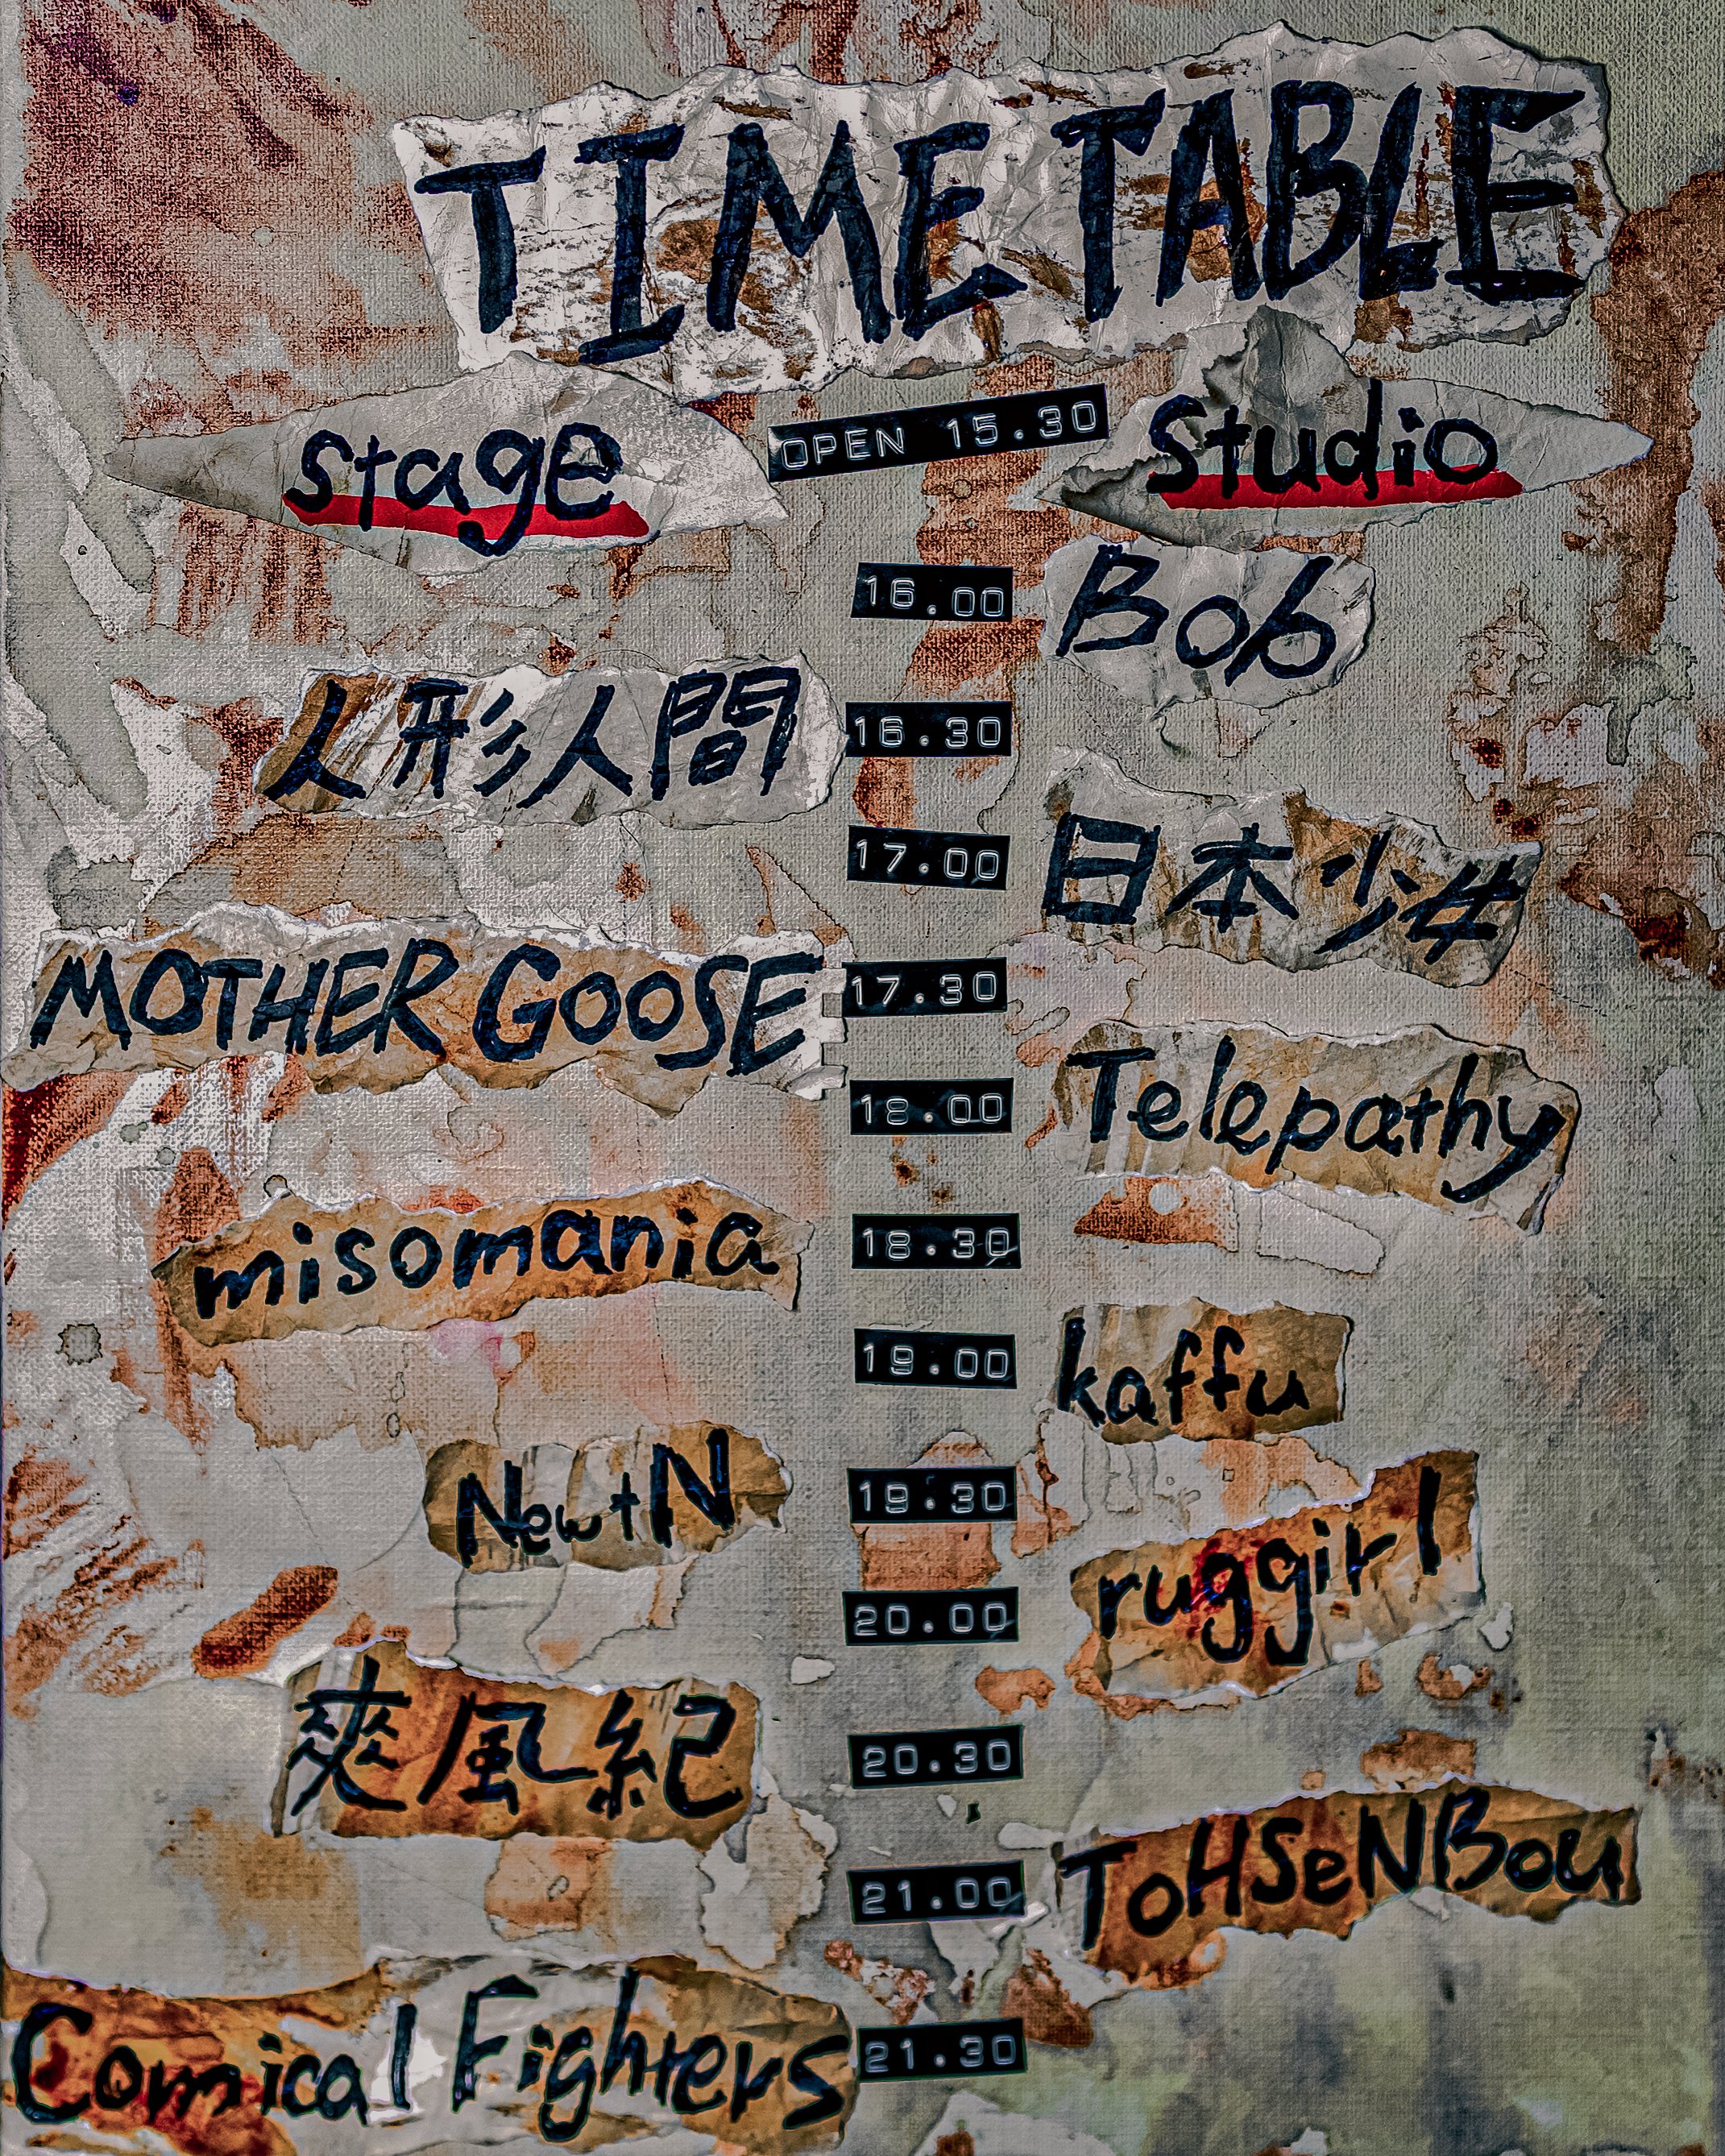 TIME TABLE
stage OPEN 15.30 Studio
16.00 Bob
人形人間 16.30
17.00 日本少女
MOTHER GOOSE 17.30
18.00 Telepathy
misomania 18.30
19.00 kaffu
NewtN 19.30
ruggirl
20.00
爽風紀 20.30
21.00 ToHSeNBou
Comical Fighters 21.30